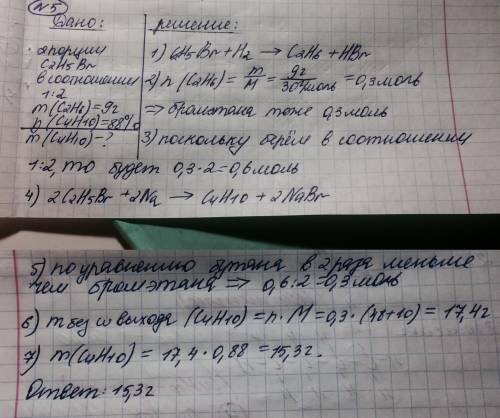 №5
Дано:
2 порции
C2H5Br
в соотношении
1:2
m(C2H6)=9г
η(C4H10)=88%
m(C4H10)-?
решение:
1) C2H5Br+H2 → C2H6+HBr
2) n(C2H6)= m/M = 9г/30г/моль = 0,3моль
⇒ бромэтана тоже 0,3моль
3) поскольку берём в соотношении
1:2, то будет 0,3·2=0,6моль
4) 2C2H5Br+2Na → C4H10+2NaBr
5) по уравнению бутана в 2 раза меньше
чем бромэтана ⇒ 0,6:2=0,3моль
6) m без ω выхода (C4H10)=n·M=0,3·(48+10)=17,4г
7) m(C4H10)=17,4·0,88=15,3г.
Ответ: 15,3г